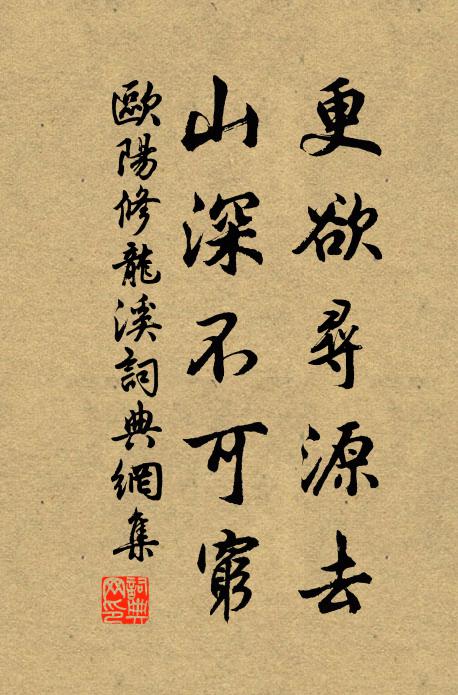 更欲尋源去
山深不可窮
歐陽修龍溪詞典網集
詞典
網印